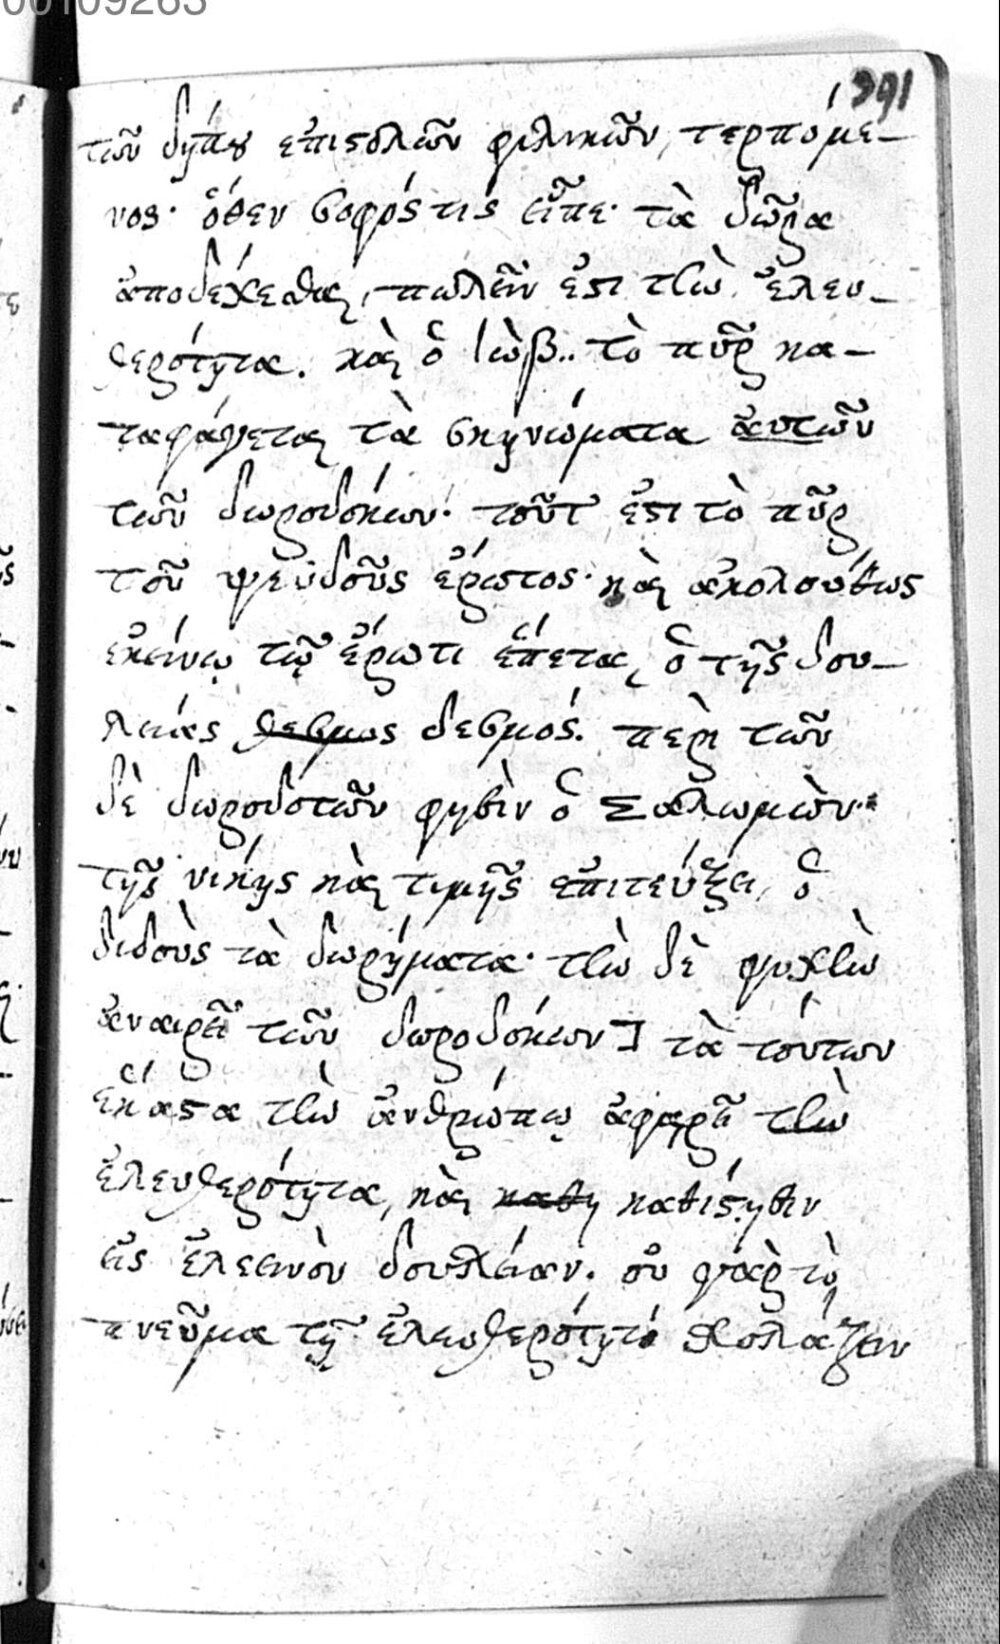 00109263
391
τῶν δήπου ἐπιστολῶν φιλικῶν, τερπόμε-
νος· ὅθεν σοφός τις εἶπε· τὰ δῶρα
ἀποδέχεσθαι, πωλεῖν ἐστι τὴν ἐλευ-
θερότητα. καὶ ὁ Ἰὼβ.. τὸ πῦρ κα-
ταφάγεται τὰ σκηνώματα αὐτῶν
τῶν δωροδόκων· τοῦτ ἐστι τὸ πῦρ
τοῦ ψευδοῦς ἔρωτος· καὶ ἀκολούθως
ἐκείνῳ τῷ ἔρωτι ἕπεται ὁ τῆς δου-
λείας θεσμως δεσμός. περὶ τῶν
δὲ δωροδοτῶν φησὶν ὁ Σαλωμὼν·
τῆς νίκης καὶ τιμῆς ἐπιτεύξει ὁ
διδοὺς τὰ δωρήματα· τὴν δὲ ψυχὴν
ἀναιρεῖ τῶν δωροδόκων] τὰ τούτων
ἕκαστα τὴν ἀνθρώπῳ ἀφαιρεῖ τὴν
ἐλευθερότητα, καὶ καθη καθίστησιν
εἰς ἐλεεινὸν δουλείαν. οὐ γὰρ τὸ
πνεῦμα τῇ ἐλευθερότητι σχολάζειν